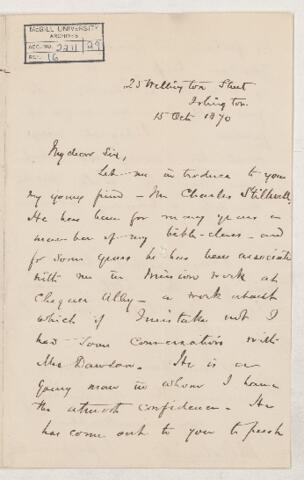 McGILL UNIVERSITY
ARCHIVES
ACC. NO. 2211 29
REF. 16
25 Wellington Street
Islington.
15 Oct 1870
My dear Sir,
Let me introduce to you
my young friend - Mr Charles Stillwell.
He has been for many years a
member of my bible-class - and
for some years he has been associated
with me in Mission work at
Chequer Alley - a work about
which if I mistake not I
had some conversation with
Mrs Dawson. He is a
young man in whom I have
the utmost confidence. He
has come out to you to push